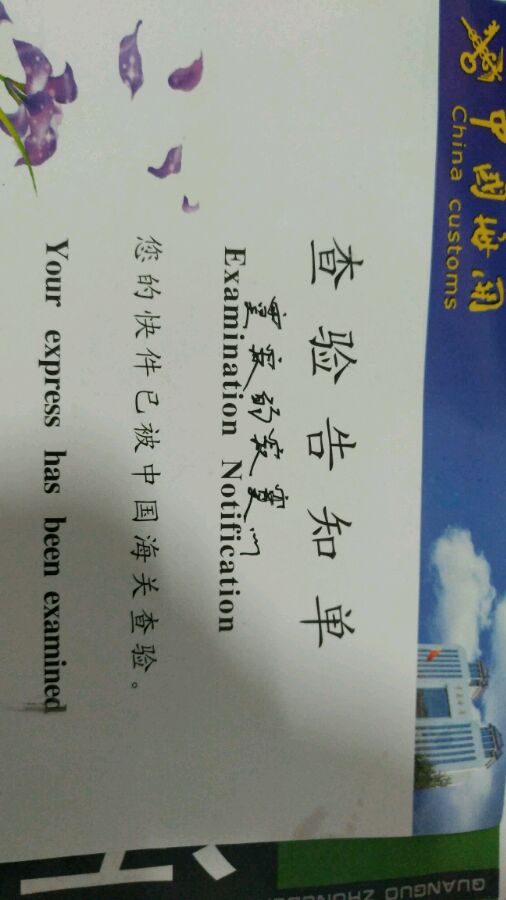 中国海关
China customs
查验告知单
Examination Notification
您的快件已被中国海关查验。
Your express has been examined